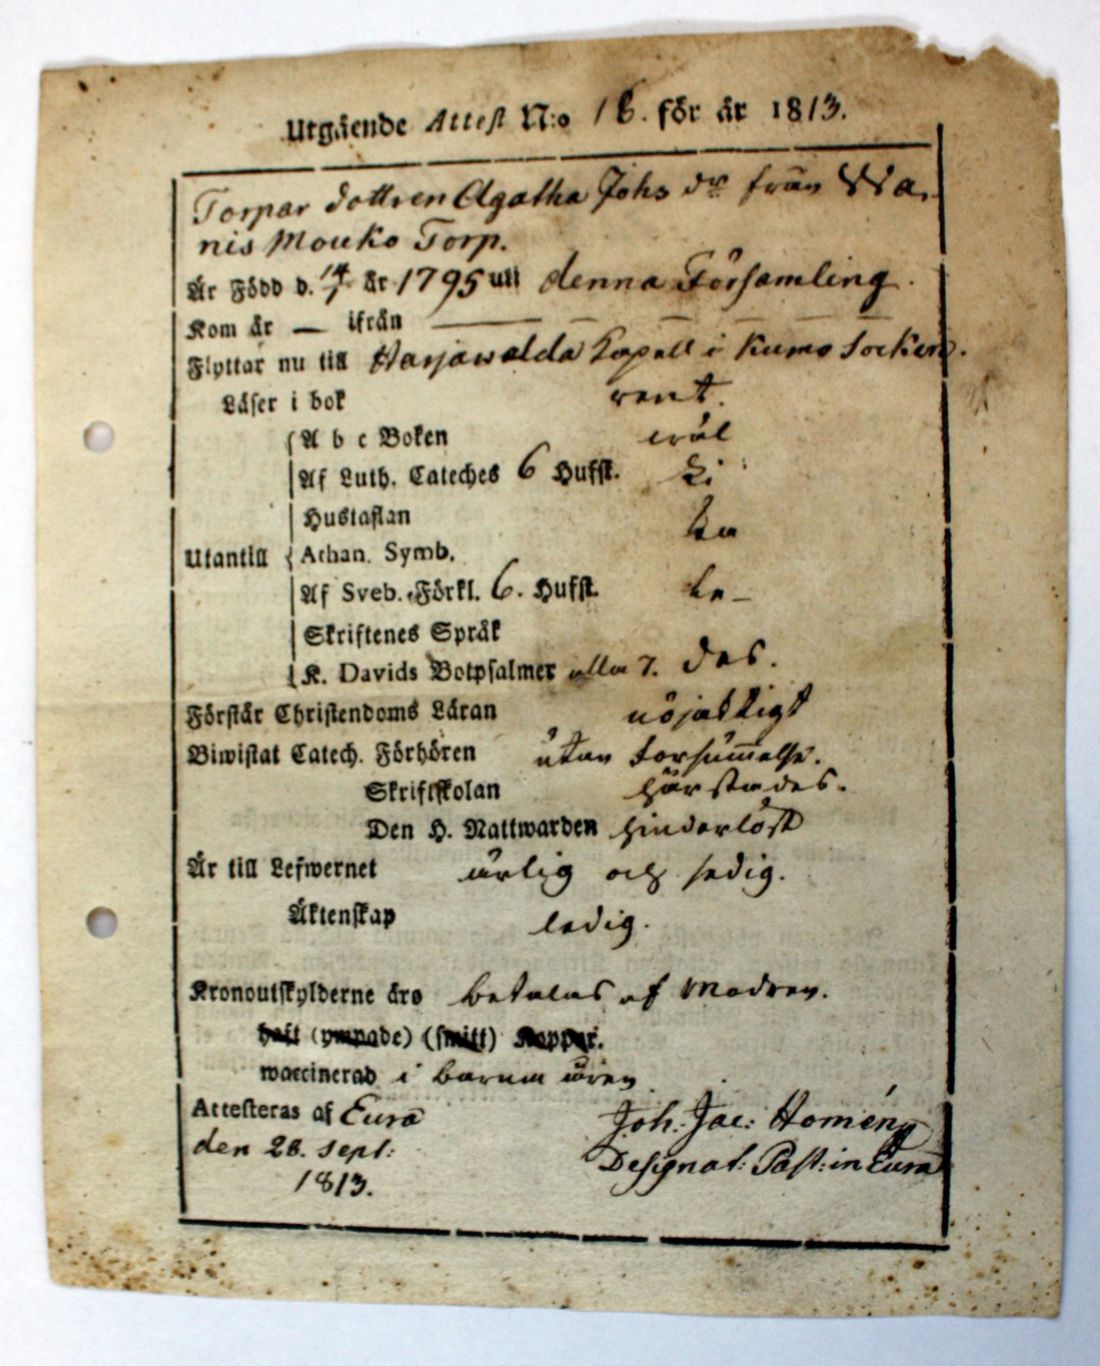 Utgående Attest N:o 16. för år 1813.
Torpar dottren Agatha Johs dr från Wa-
nis Mouko Torp.
Är Född d. 14/7 år 1795 uti denna Församling.
Kom år — ifrån —
Flyttar nu till Harjawalda Capell i Kumo Socken.
Läser i bok rent.
A b c Boken wäl
Af Luth. Cateches 6 Hufst. Li
Hustaflan ka
Utantill Athan. Symb.
Af Sveb. Förkl. 6. Hufst. le-
Skriftenes Språk
K. Davids Botpsalmer alla 7. des.
Förstår Christendoms Läran nöjaktigt
Biwistat Catech. Förhören utan försummelse.
Skriftskolan härstädes.
Den H. Nattwarden hinderlöst
Är till Lefwernet ärlig och sedig.
Äktenskap ledig.
Kronoutskylderne äro betalas af modren.
haft (ympade) (smitt) Koppor.
waccinerad i barna åren
Attesteras af Eura Joh: Jac: Homén
den 28. Sept: Designat: Past: in Eura
1813.